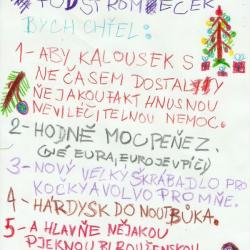 POD STROMEČEK
BYCH CHTEL:
1- ABY KALOUSEK S
NEČASEM DOSTALY
ŇEJAKOU FAKT HNUSNOU
NEVILÉČITELNOU NEMOC.
2- HODNĚ MOC PEŇEZ.
(NÉ EURA, EURO JE V PIČI)
3- NOVÝ VELKÝ ŠKRABADLO PRO
KOČKY A VOLVO PRO MŇE.
4- HARDYSK DO NOOTBŮKA.
5- A HLAVNE NĚJAKOU
PJEKNOU BLROUŠENSKOU